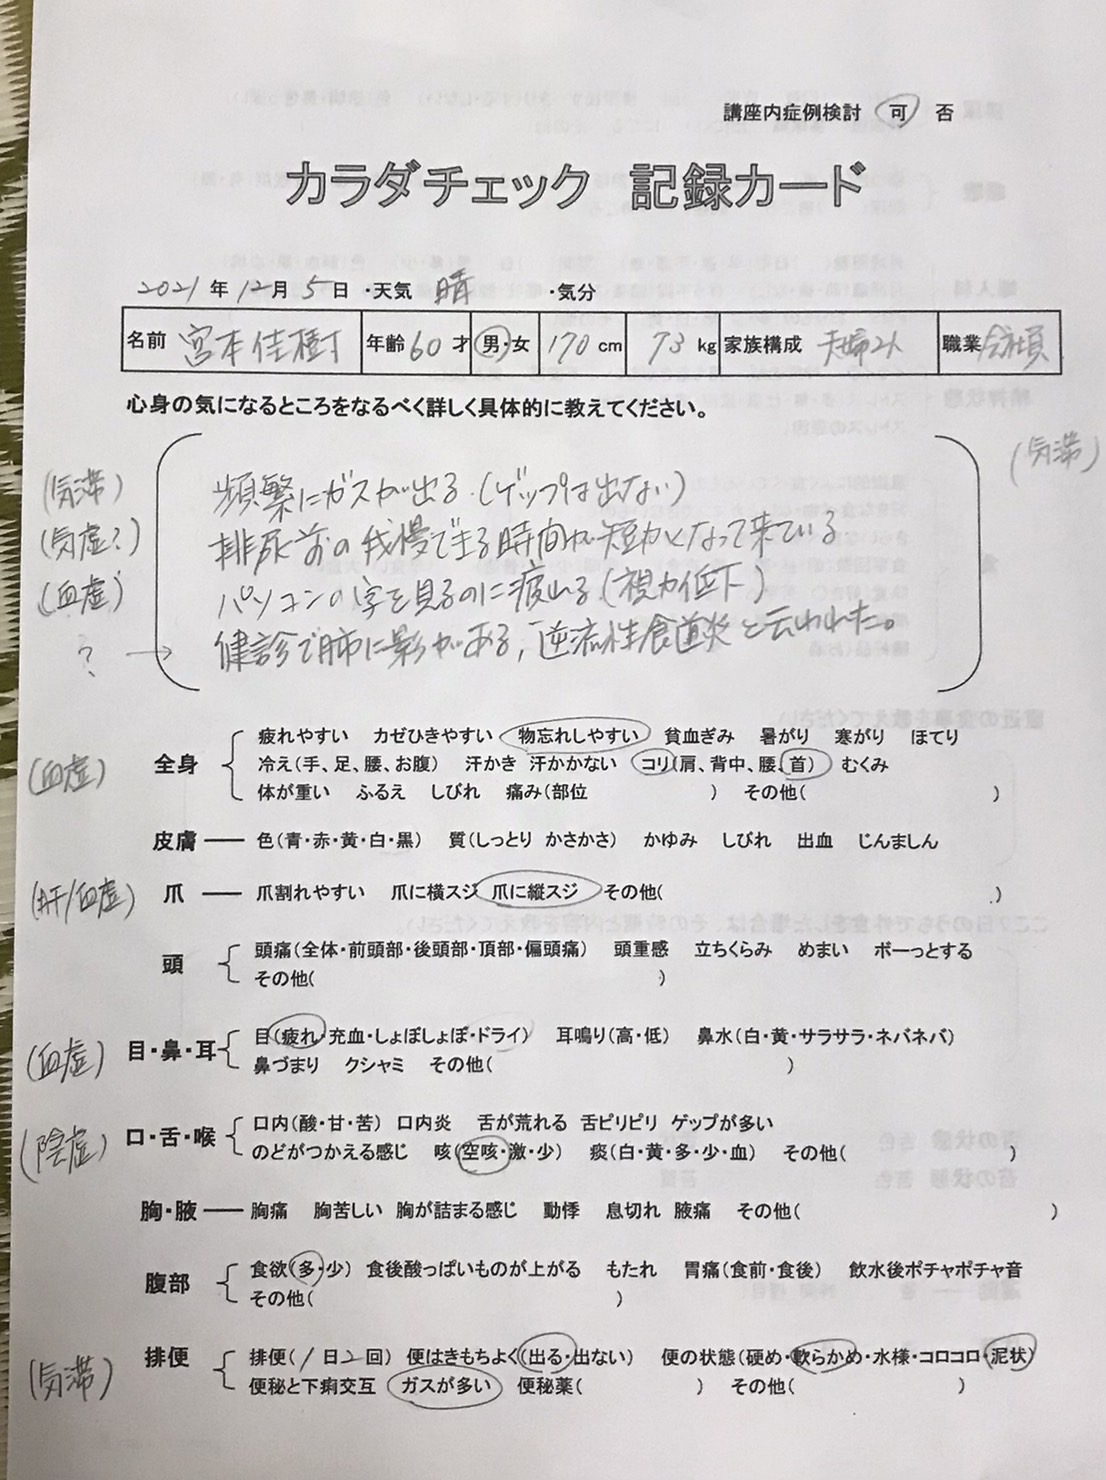 講座内症例検討 可 否
カラダチェック 記録カード
2021年12月5日 ・天気 晴 ・気分
名前 宮本佳樹 年齢 60 才 男・女 170 cm 73 kg 家族構成 夫婦2人 職業 会社員
心身の気になるところをなるべく詳しく具体的に教えてください。
(気滞) 頻繁にガスが出る。(ゲップは出ない) (気滞)
(気虚?) 排尿前の我慢できる時間が短かくなって来ている
(血虚) パソコンの字を見るのに疲れる(視力低下)
? → 健診で肺に影がある,逆流性食道炎と云われた。
疲れやすい カゼひきやすい 物忘れしやすい 貧血ぎみ 暑がり 寒がり ほてり
(血虚) 全身 冷え(手、足、腰、お腹) 汗かき 汗かかない コリ(肩、背中、腰、首) むくみ
体が重い ふるえ しびれ 痛み(部位 ) その他( )
皮膚 色(青・赤・黄・白・黒) 質(しっとり かさかさ) かゆみ しびれ 出血 じんましん
(肝/血虚) 爪 爪割れやすい 爪に横スジ 爪に縦スジ その他( )
頭 頭痛(全体・前頭部・後頭部・頂部・偏頭痛) 頭重感 立ちくらみ めまい ボーっとする
その他( )
(血虚) 目・鼻・耳 目(疲れ・充血・しょぼしょぼ・ドライ) 耳鳴り(高・低) 鼻水(白・黄・サラサラ・ネバネバ)
鼻づまり クシャミ その他( )
(陰虚) 口・舌・喉 口内(酸・甘・苦) 口内炎 舌が荒れる 舌ピリピリ ゲップが多い
のどがつかえる感じ 咳(空咳・激・少) 痰(白・黄・多・少・血) その他( )
胸・腋 胸痛 胸苦しい 胸が詰まる感じ 動悸 息切れ 腋痛 その他( )
腹部 食欲(多・少) 食後酸っぱいものが上がる もたれ 胃痛(食前・食後) 飲水後ポチャポチャ音
その他( )
(気滞) 排便 排便(1日2回) 便はきもちよく(出る・出ない) 便の状態(硬め・軟らかめ・水様・コロコロ・泥状)
便秘と下痢交互 ガスが多い 便秘薬( ) その他( )